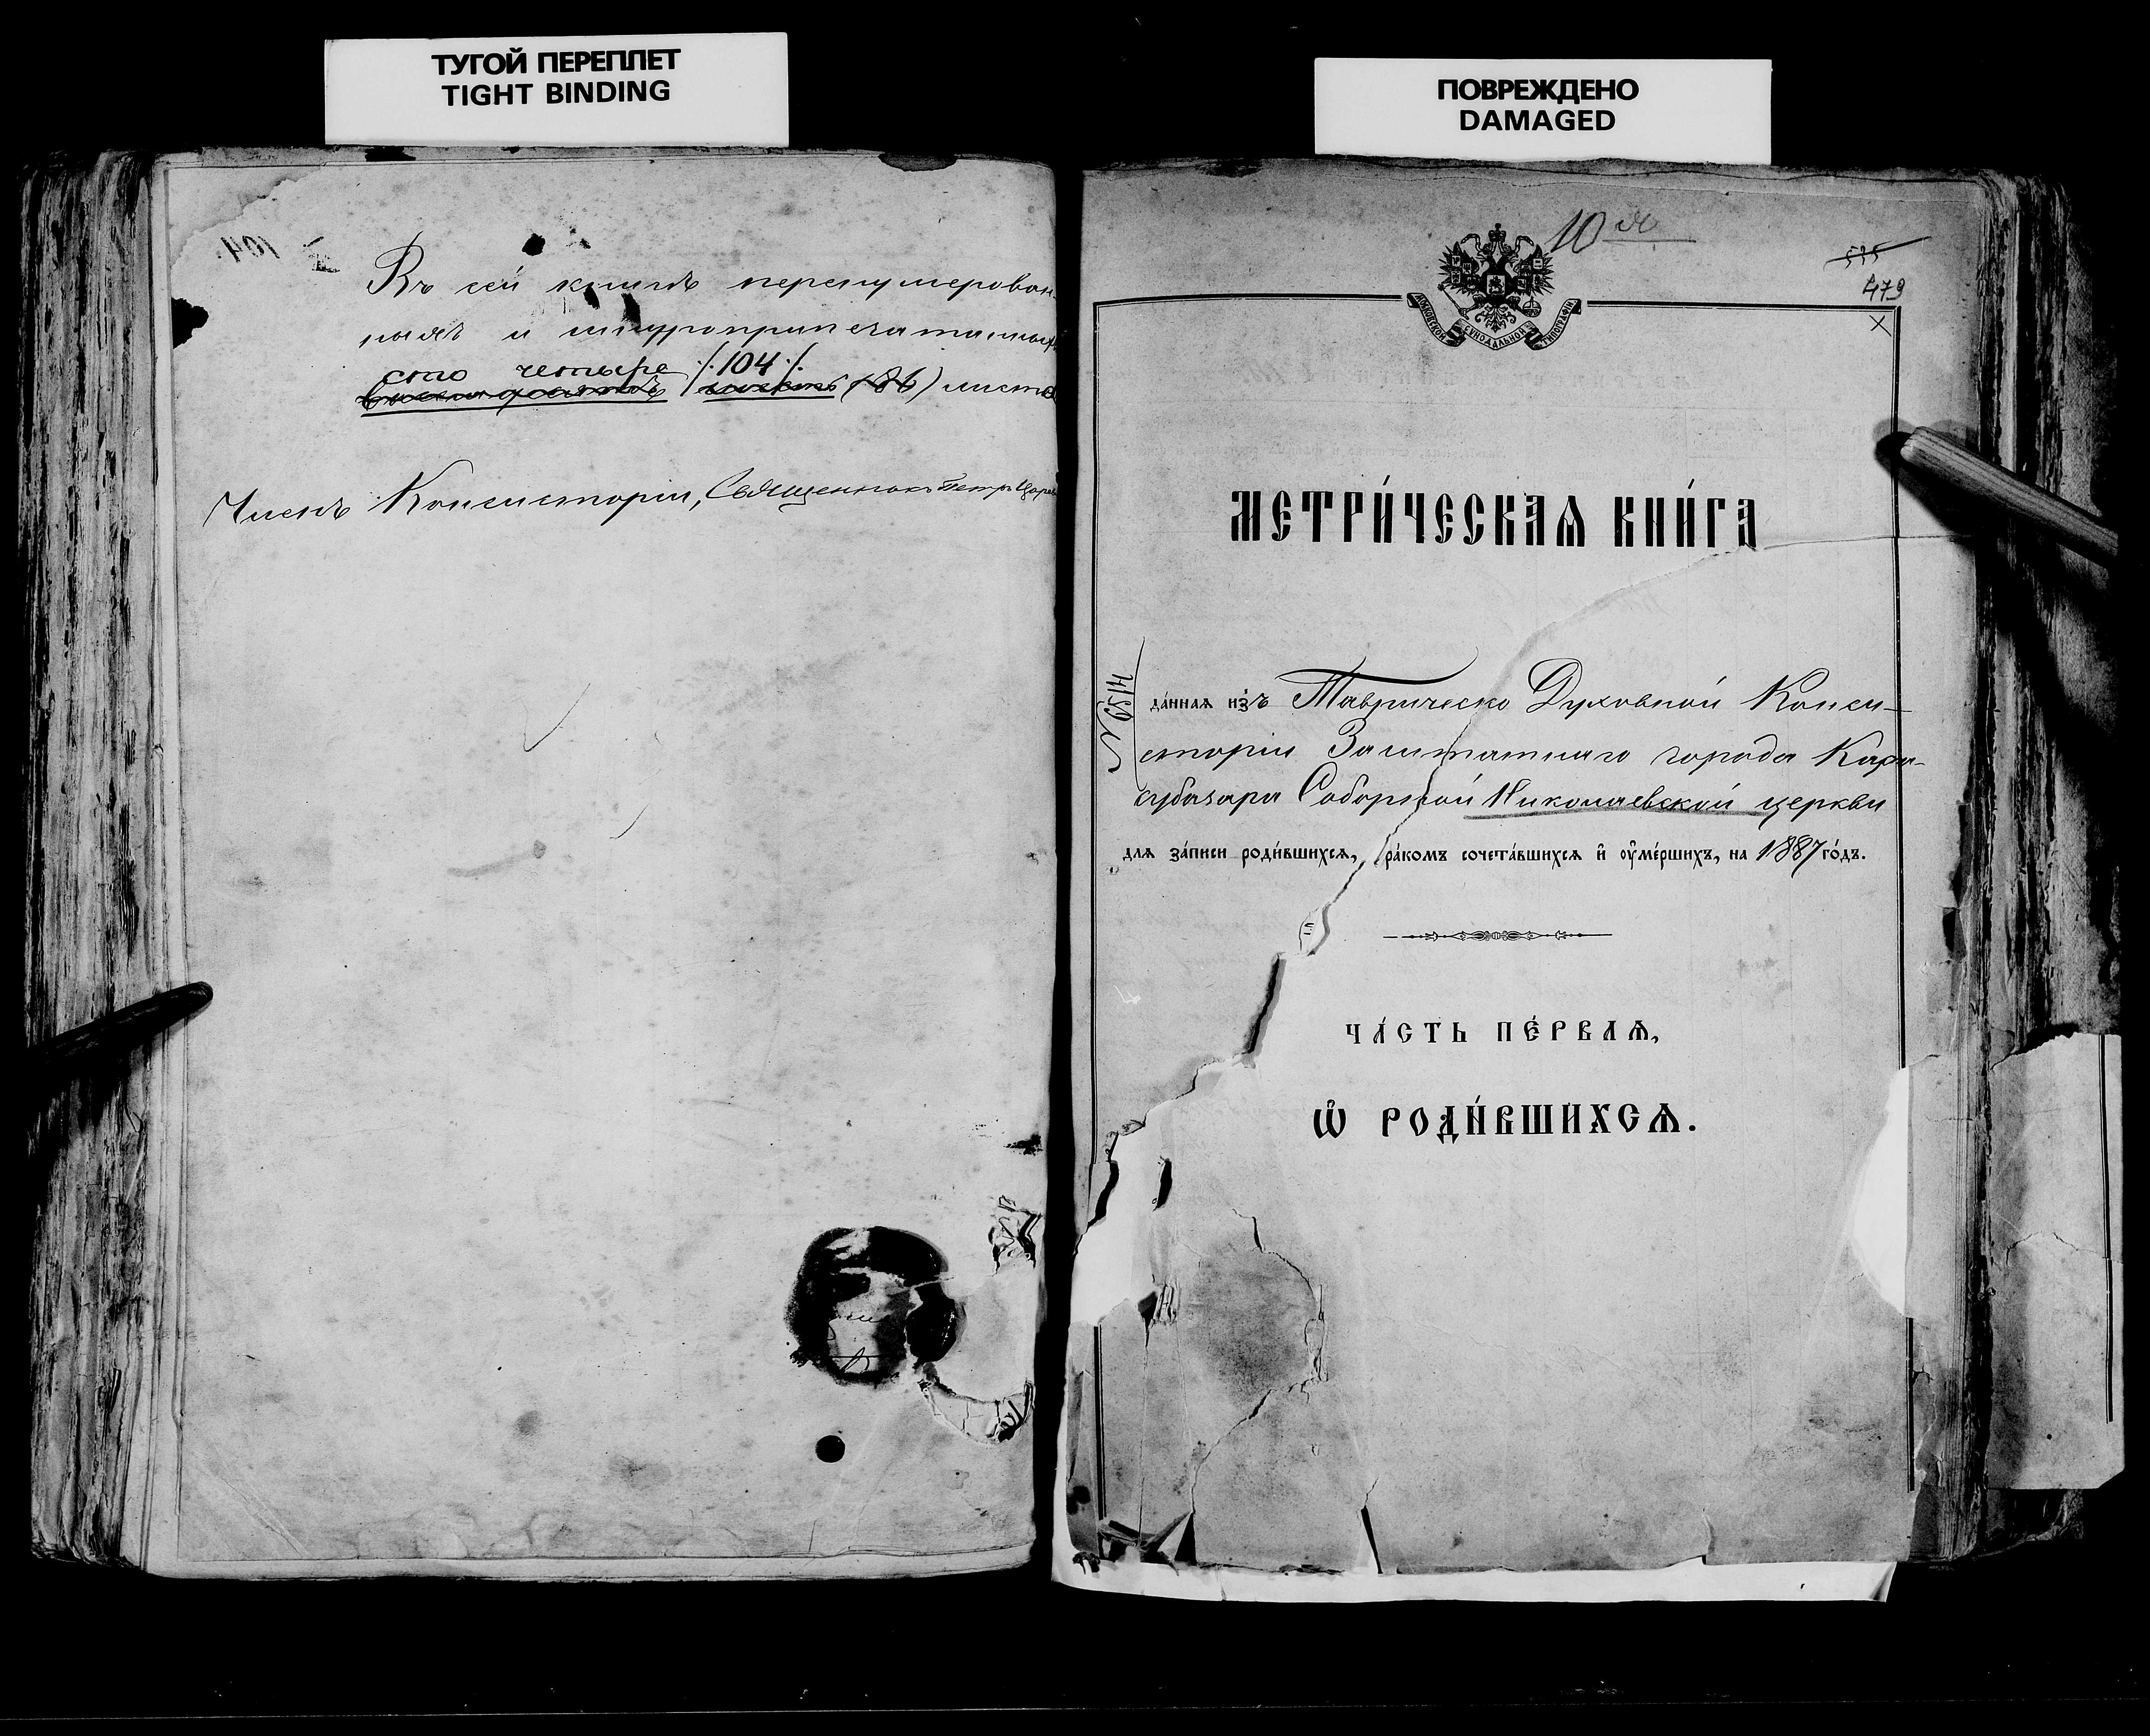 ТУГОЙ ПЕРЕПЛЕТ
TIGHT BINDING
104
Въ сей книгѣ перенумерован-
ныхъ и шнуроприпечатанныхъ
сто четыре ./.104./.
восемьдесятъ шесть (86) листо
Членъ Консисторіи, Священникъ Петръ
ПОВРЕЖДЕНО
DAMAGED
10
535
479
МОСКОВСКОЙ СѴНОДАЛЬНОЙ ТИПОГРАФІИ
МЕТРИ́ЧЕСКАѦ КНИ́ГА
№ 6514
да́ннаѧ и҆зъ Таврическо Духовной Конси-
сторіи Заштатнаго города Кара-
субазара Соборной Николаевской церкви
для за́писи роди́вшихсѧ, бра́комъ сочета́вшихсѧ и҆ ᲂу҆ме́ршихъ, на 1887 го́дъ.
ЧА́СТЬ ПЕ́РВАѦ,
Ѡ҆ РОДИ́ВШИХСѦ.